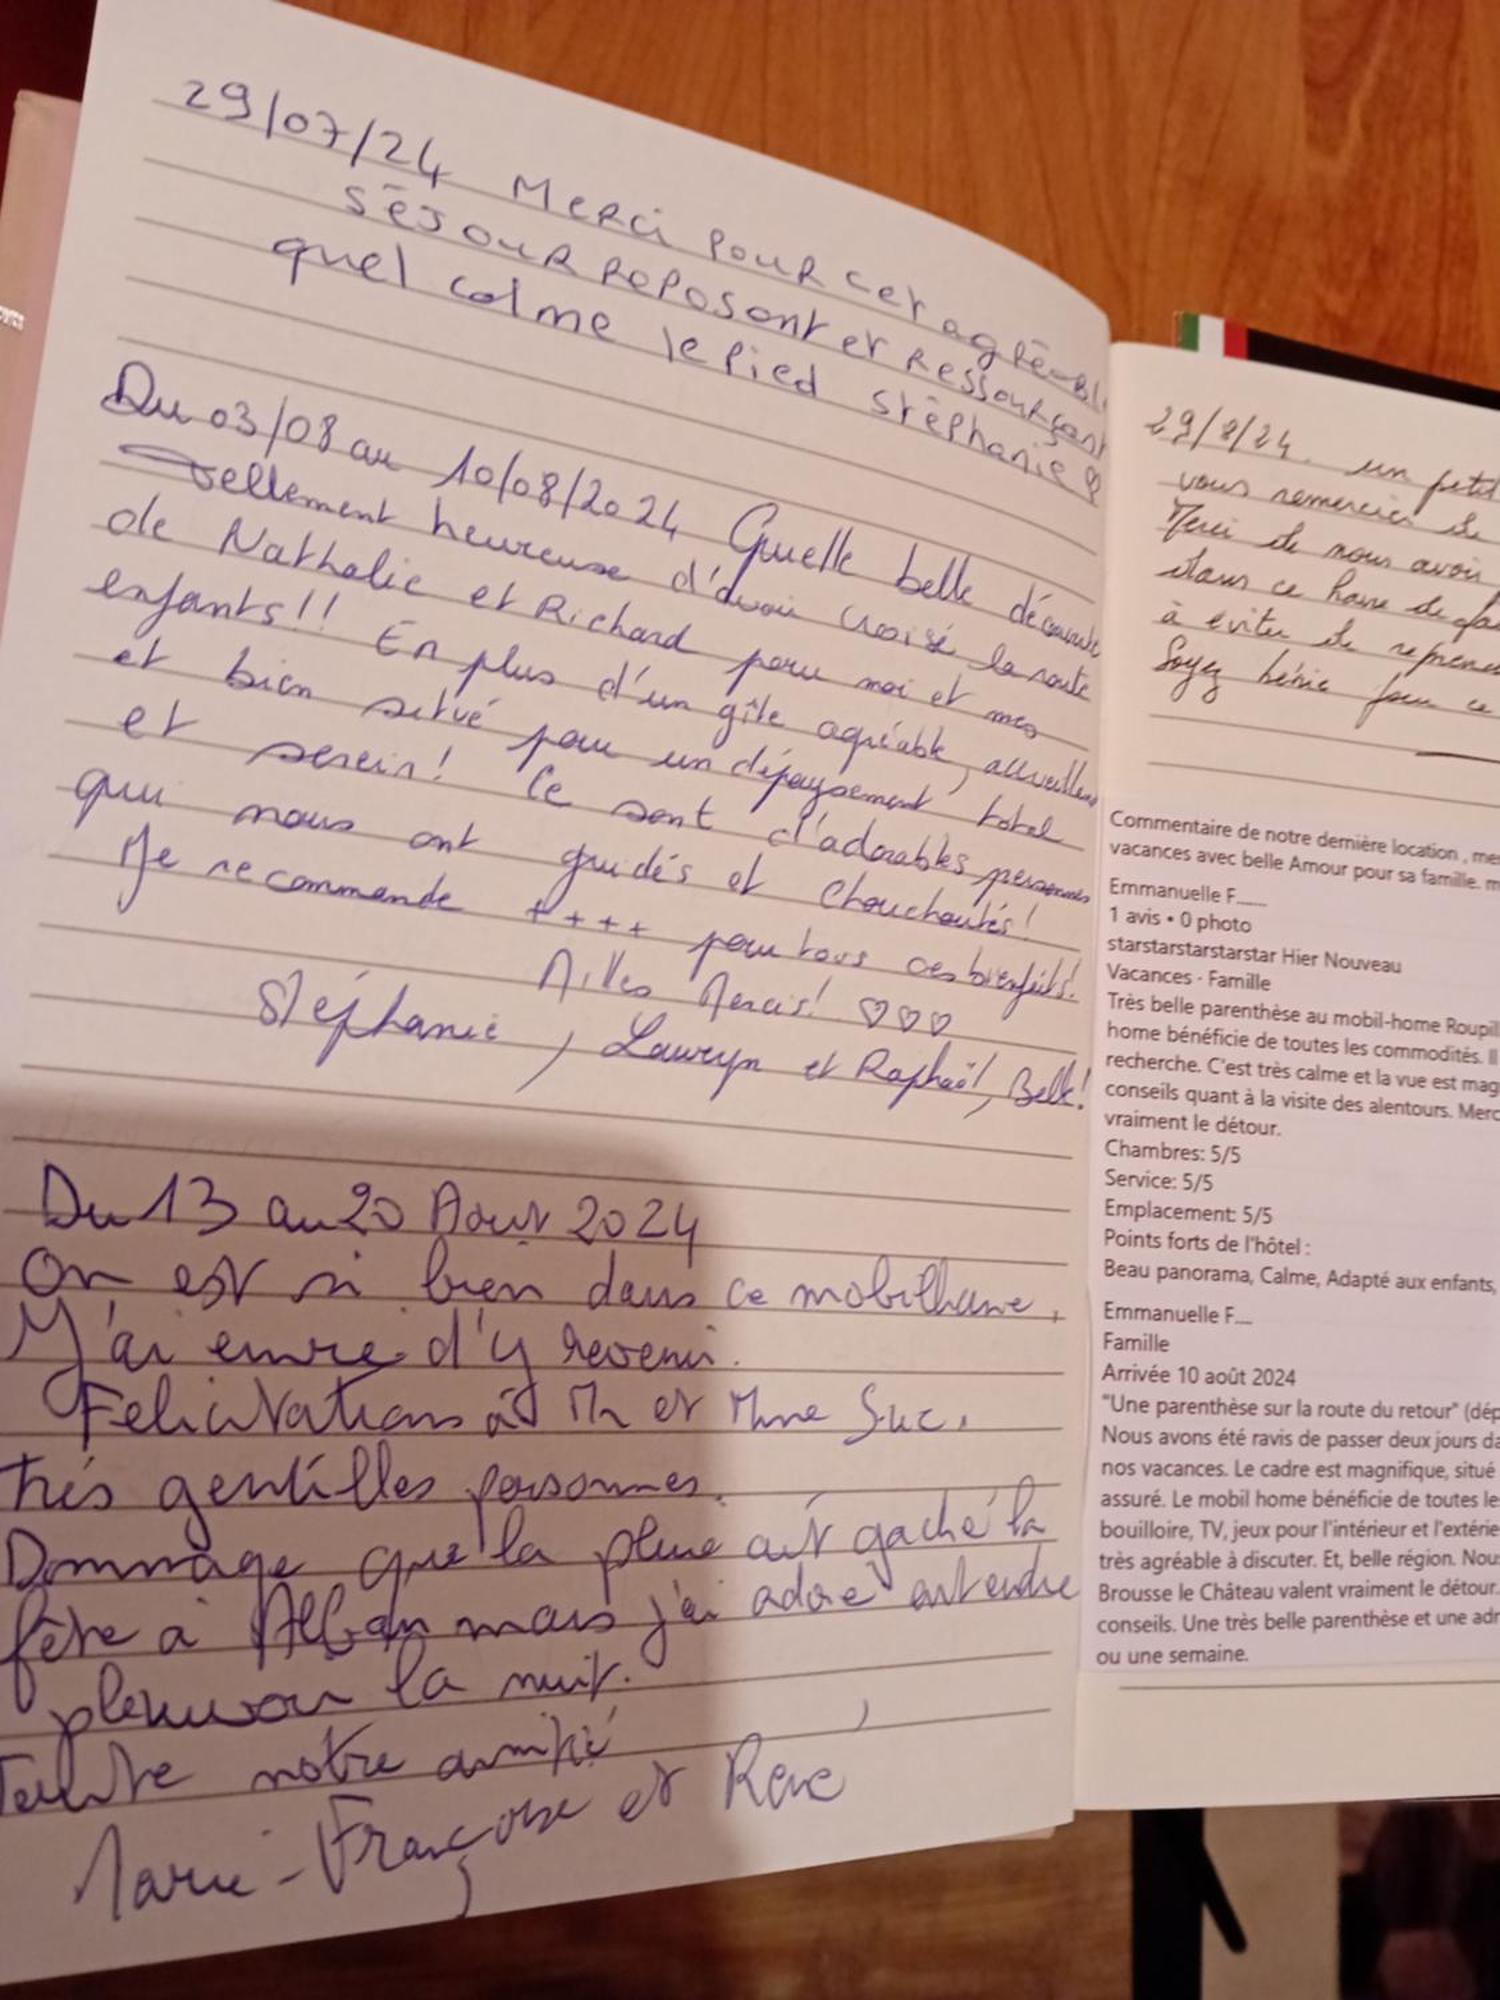 29/07/24 Merci pour cet agréable
séjour reposant et ressourçant
quel calme le pied stéphanie
Du 03/08 au 10/08/2024 Quelle belle découverte
tellement heureuse d'avoir croisé la route
de Nathalie et Richard pour moi et mes
enfants!! En plus d'un gîte agréable, accueillant
et bien situé pour un dépaysement total
et serein! Ce sont d'adorables personnes
qui nous ont guidés et chouchoutés!
Je recommande ++++ pour tous ces bienfaits!
Milles Mercis! ♡♡♡
Stéphanie, Lauryn et Raphaël, Belk!
Du 13 au 20 Aout 2024
On est si bien dans ce mobilhome,
J'ai envie d'y revenir.
Felicitations à Mr et Mme Suc,
très gentilles personnes.
Dommage que la pluie ait gaché la
fête à Alban mais j'ai adoré entendre
pleuvoir la nuit.
Toute notre amitié
Marie-Françoise et René
29/8/24. un petit
vous remercier de
Merci de nous avoir
dans ce havre de
à éviter de
Soyez bénie pour ce
Commentaire de notre dernière location , mes
vacances avec belle Amour pour sa famille. m
Emmanuelle F......
1 avis • 0 photo
starstarstarstarstar Hier Nouveau
Vacances - Famille
Très belle parenthèse au mobil-home Roupil
home bénéficie de toutes les commodités. Il
recherche. C'est très calme et la vue est mag
conseils quant à la visite des alentours. Merc
vraiment le détour.
Chambres: 5/5
Service: 5/5
Emplacement: 5/5
Points forts de l'hôtel :
Beau panorama, Calme, Adapté aux enfants,
Emmanuelle F....
Famille
Arrivée 10 août 2024
"Une parenthèse sur la route du retour" (dép
Nous avons été ravis de passer deux jours da
nos vacances. Le cadre est magnifique, situé
assuré. Le mobil home bénéficie de toutes les
bouilloire, TV, jeux pour l'intérieur et l'extérie
très agréable à discuter. Et, belle région. Nous
Brousse le Château valent vraiment le détour.
conseils. Une très belle parenthèse et une adr
ou une semaine.